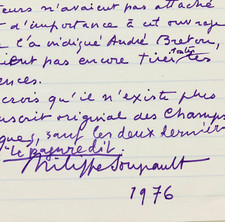 eurs n'avaient pas attaché
d'importance à cet ouvrage
l'a indiqué André Breton,
ient pas encore tirer toutes les
ences.
crois qu'il n'existe plus
uscrit original des Champs
ques, sauf les deux dernier
"Le pagure dit"
Philippe Soupault
1976